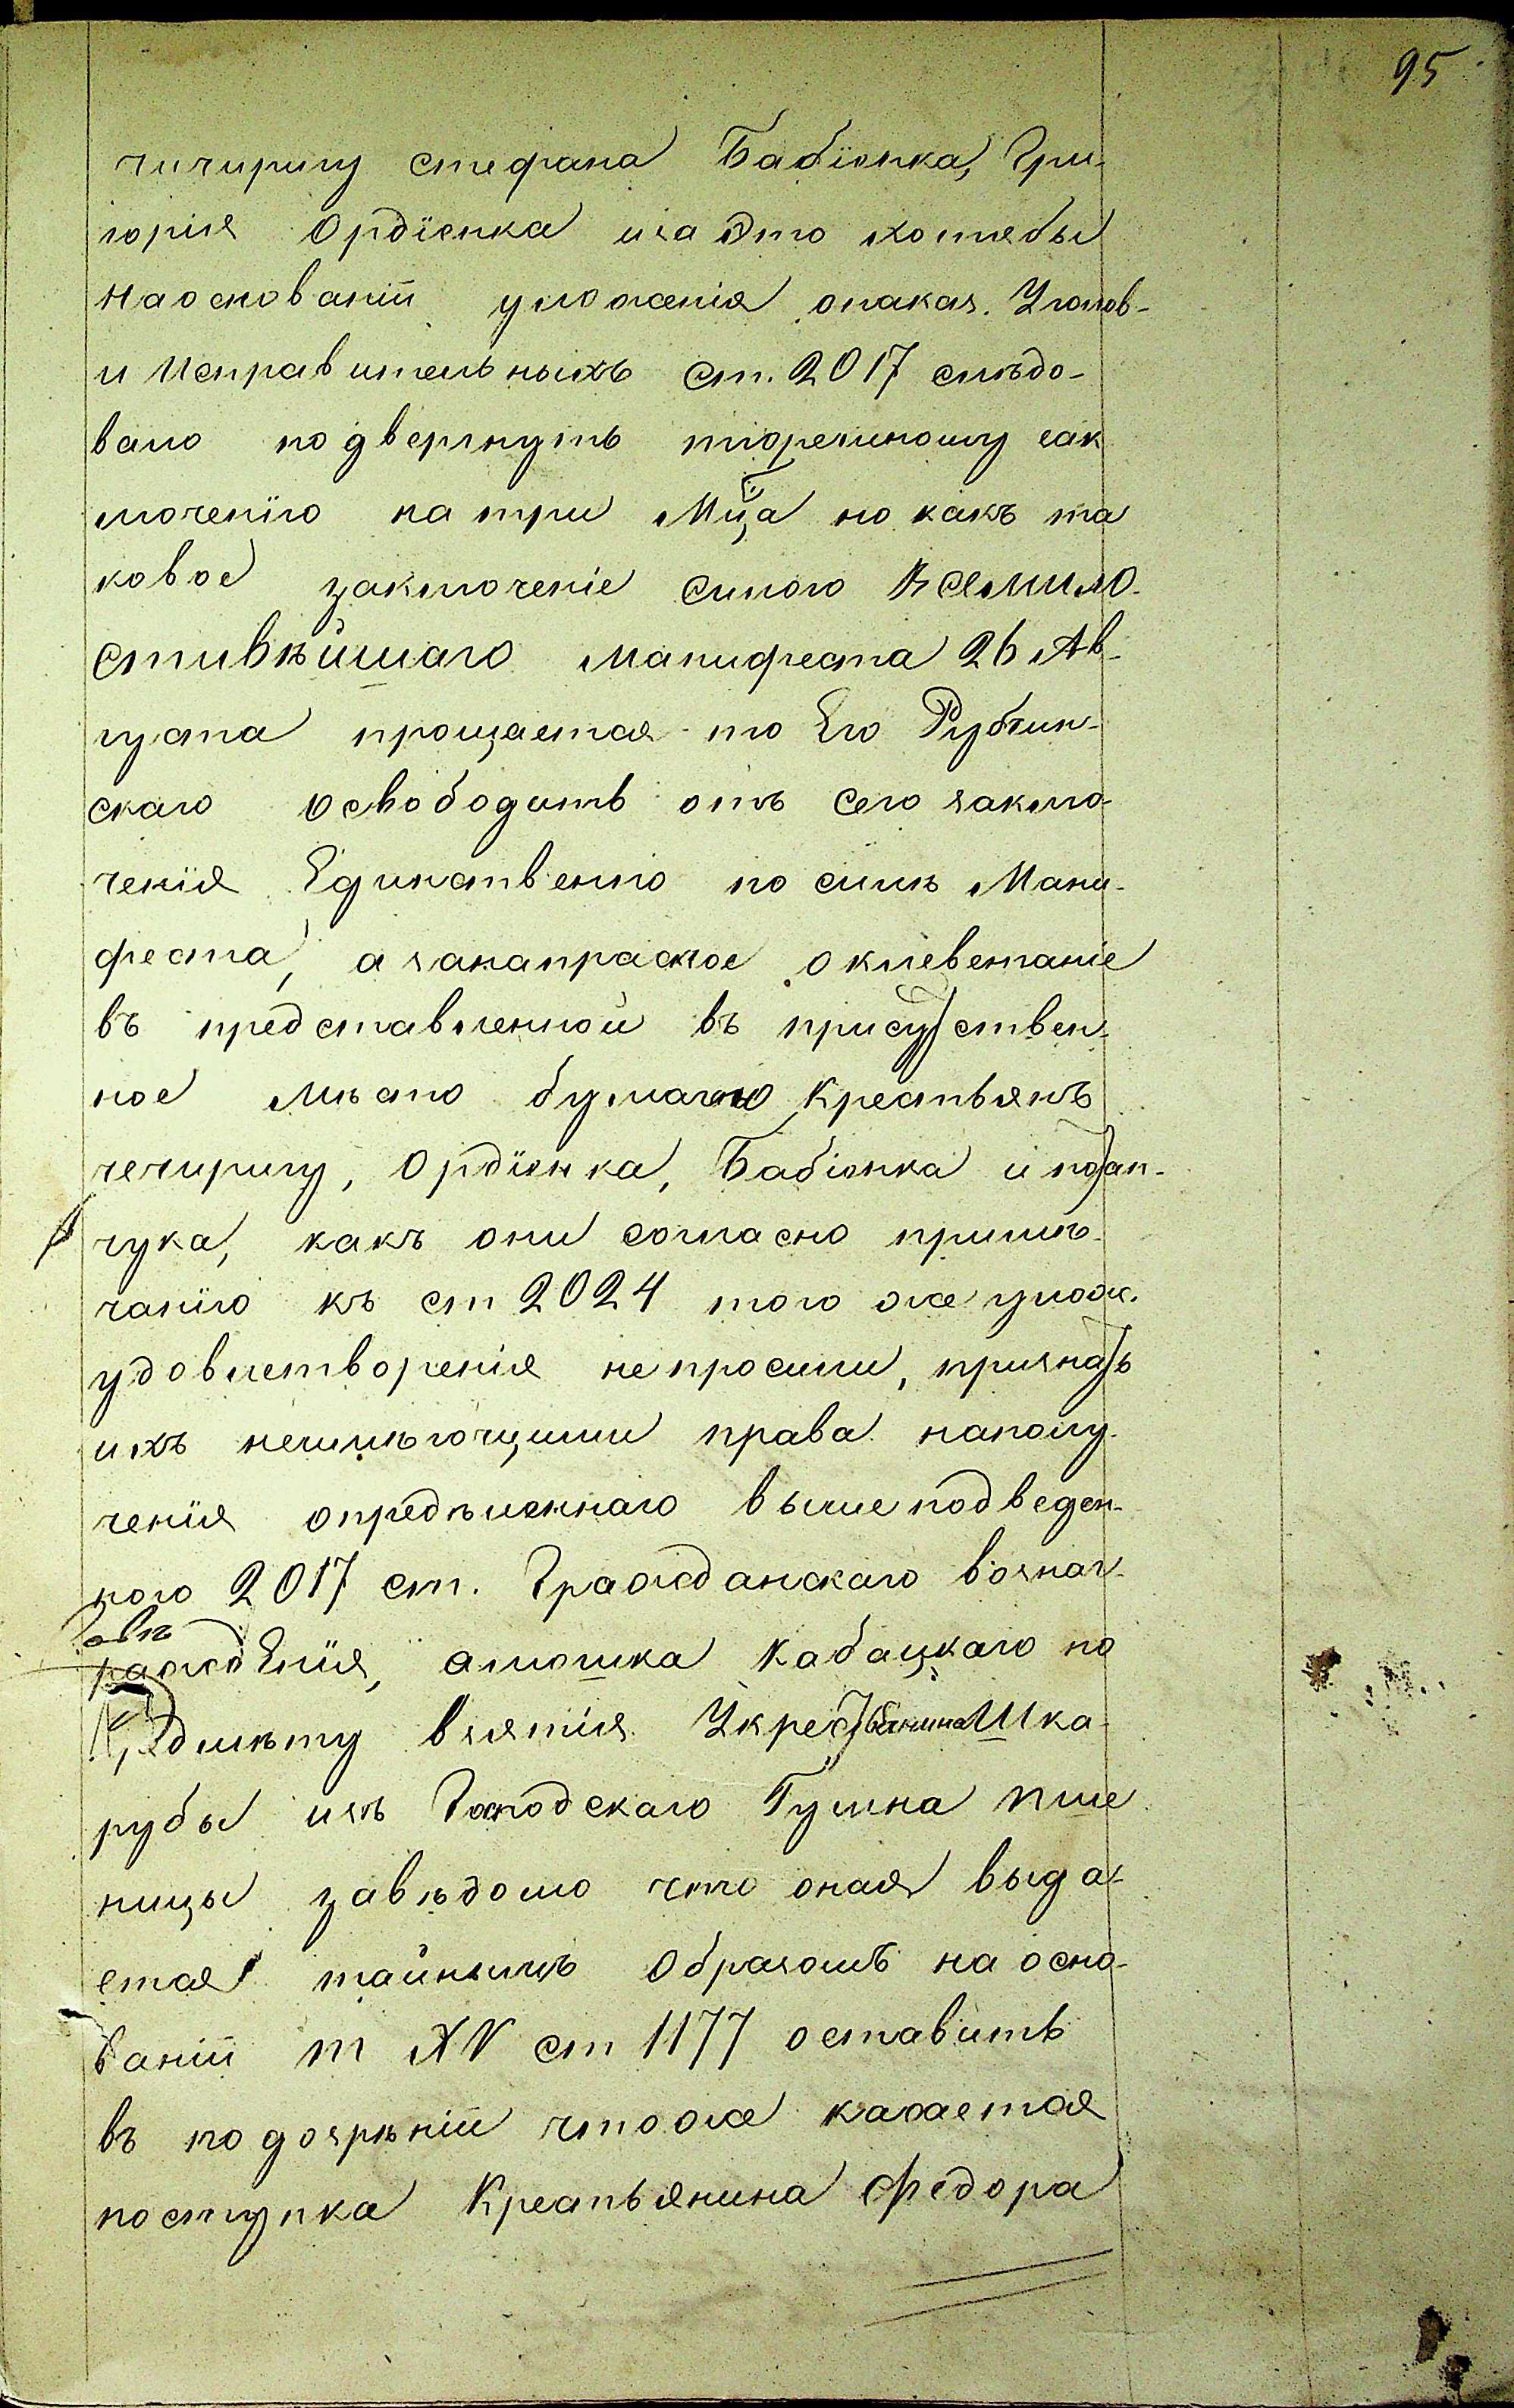 95
чичиригу стефана Бабіенка, Гри-
горія Ордіенка иза это хотябы
на основаніи уложенія онаказ. Уголов-
и Исправительныхъ ст. 2017 слѣдо-
вало подвергнуть тюремному зак
люченію на три Мца но какъ та
ковое заключеніе силою Всемило-
стивѣйшаго манифеста 26 Ав-
густа прощается то Его Рубчин-
скаго освободить отъ сего заклю-
ченія Единственно по силѣ Мани-
феста, а занапрасное оклеветаніе
въ представленной въ присутствен-
ное мѣсто бумагою крестьянъ
чечиригу, Ордіенка, Бабіенка и
чука, какъ они согласно примѣ-
чанію къ ст 2024 того же улож.
удовлетворенія непросили, признать
ихъ неимѣющими права наполу-
ченія опредѣленнаго вышеподведен-
ного 2017 ст. Гражданскаго вознаг-
ражденія, алюшка Кабацкаго по
предмѣту взятія Укрестьянина Шка-
рубы изъ Господскаго Гумна пше
ницы завѣдомо что оная выда-
ется тайнымъ Образомъ на осно-
ваніи т XV ст 1177 оставить
въ подозрѣніи чтоже касается
поступка Крестьянина Федора